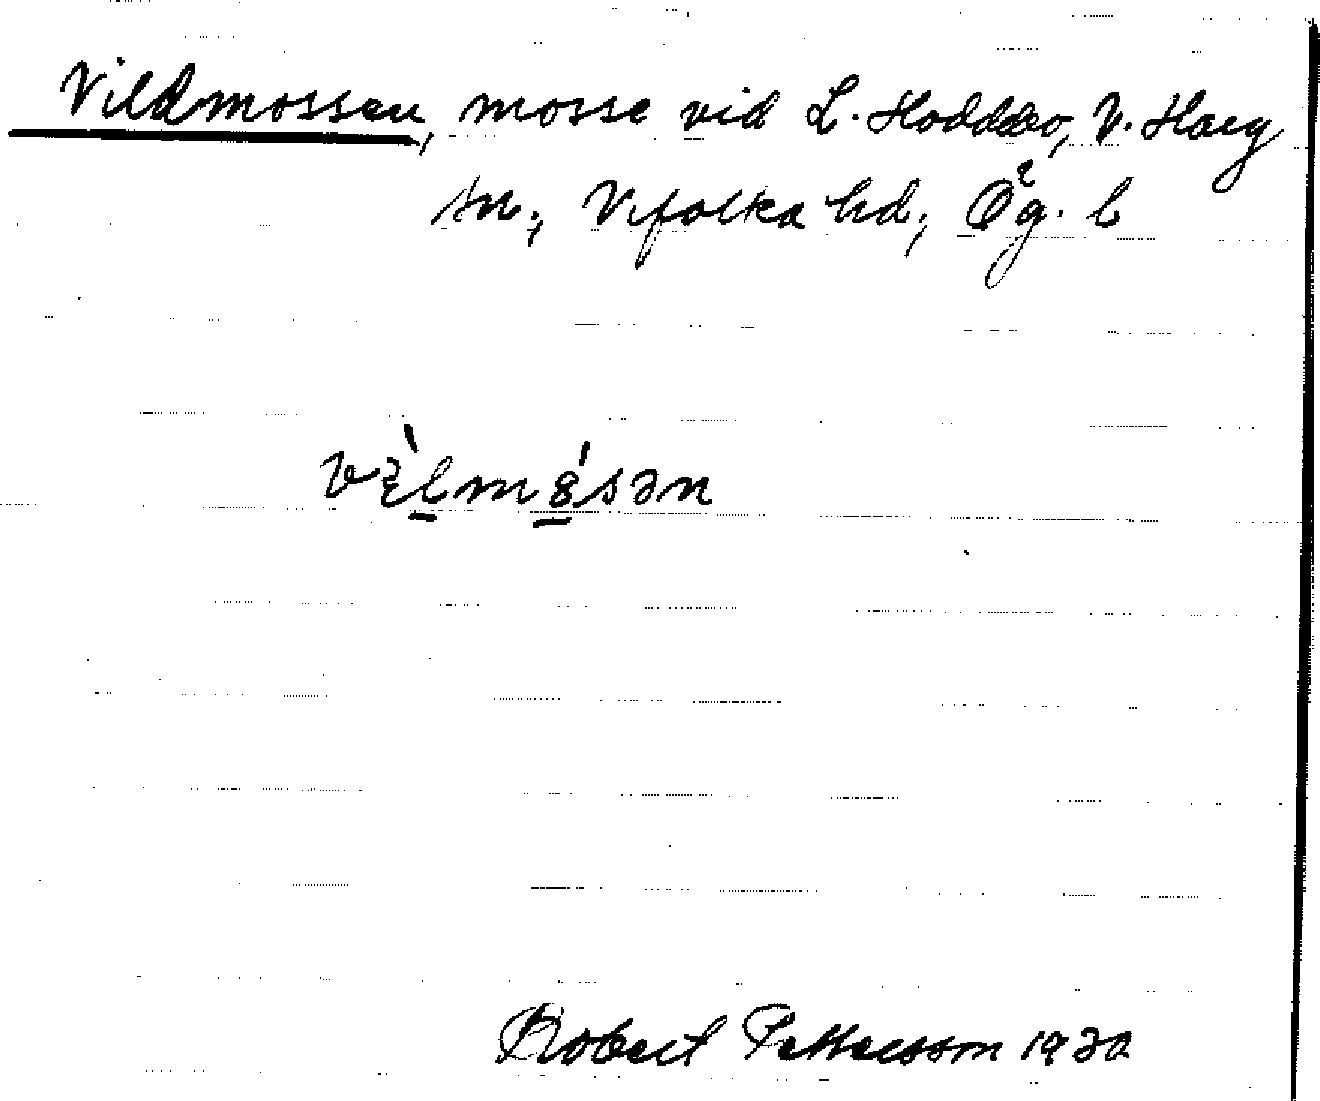 Vildmossen, mosse vid L. Hoddebo, V. Harg
sn., Vifolka hd, Ög. l
Robert Pettersson 1930